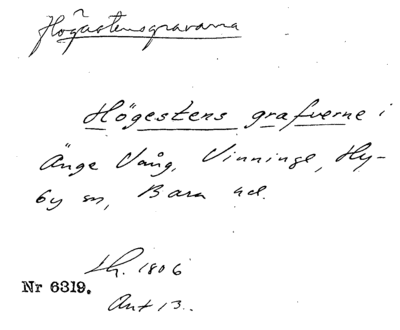 Högastensgravarna
Högestens grafverne i
Änge Vång, Vinninge, Hy-
by sn, Bara hd.
Lh. 1806
Nr 6319.
Ant 13.